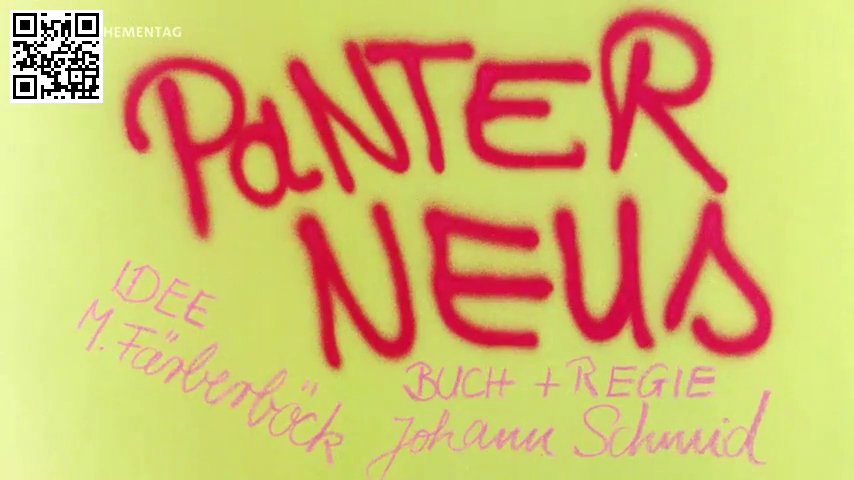 HEMENTAG
PaNTER
NEUS
IDEE
M. Färberböck
BUCH + REGIE
Johann Schmid